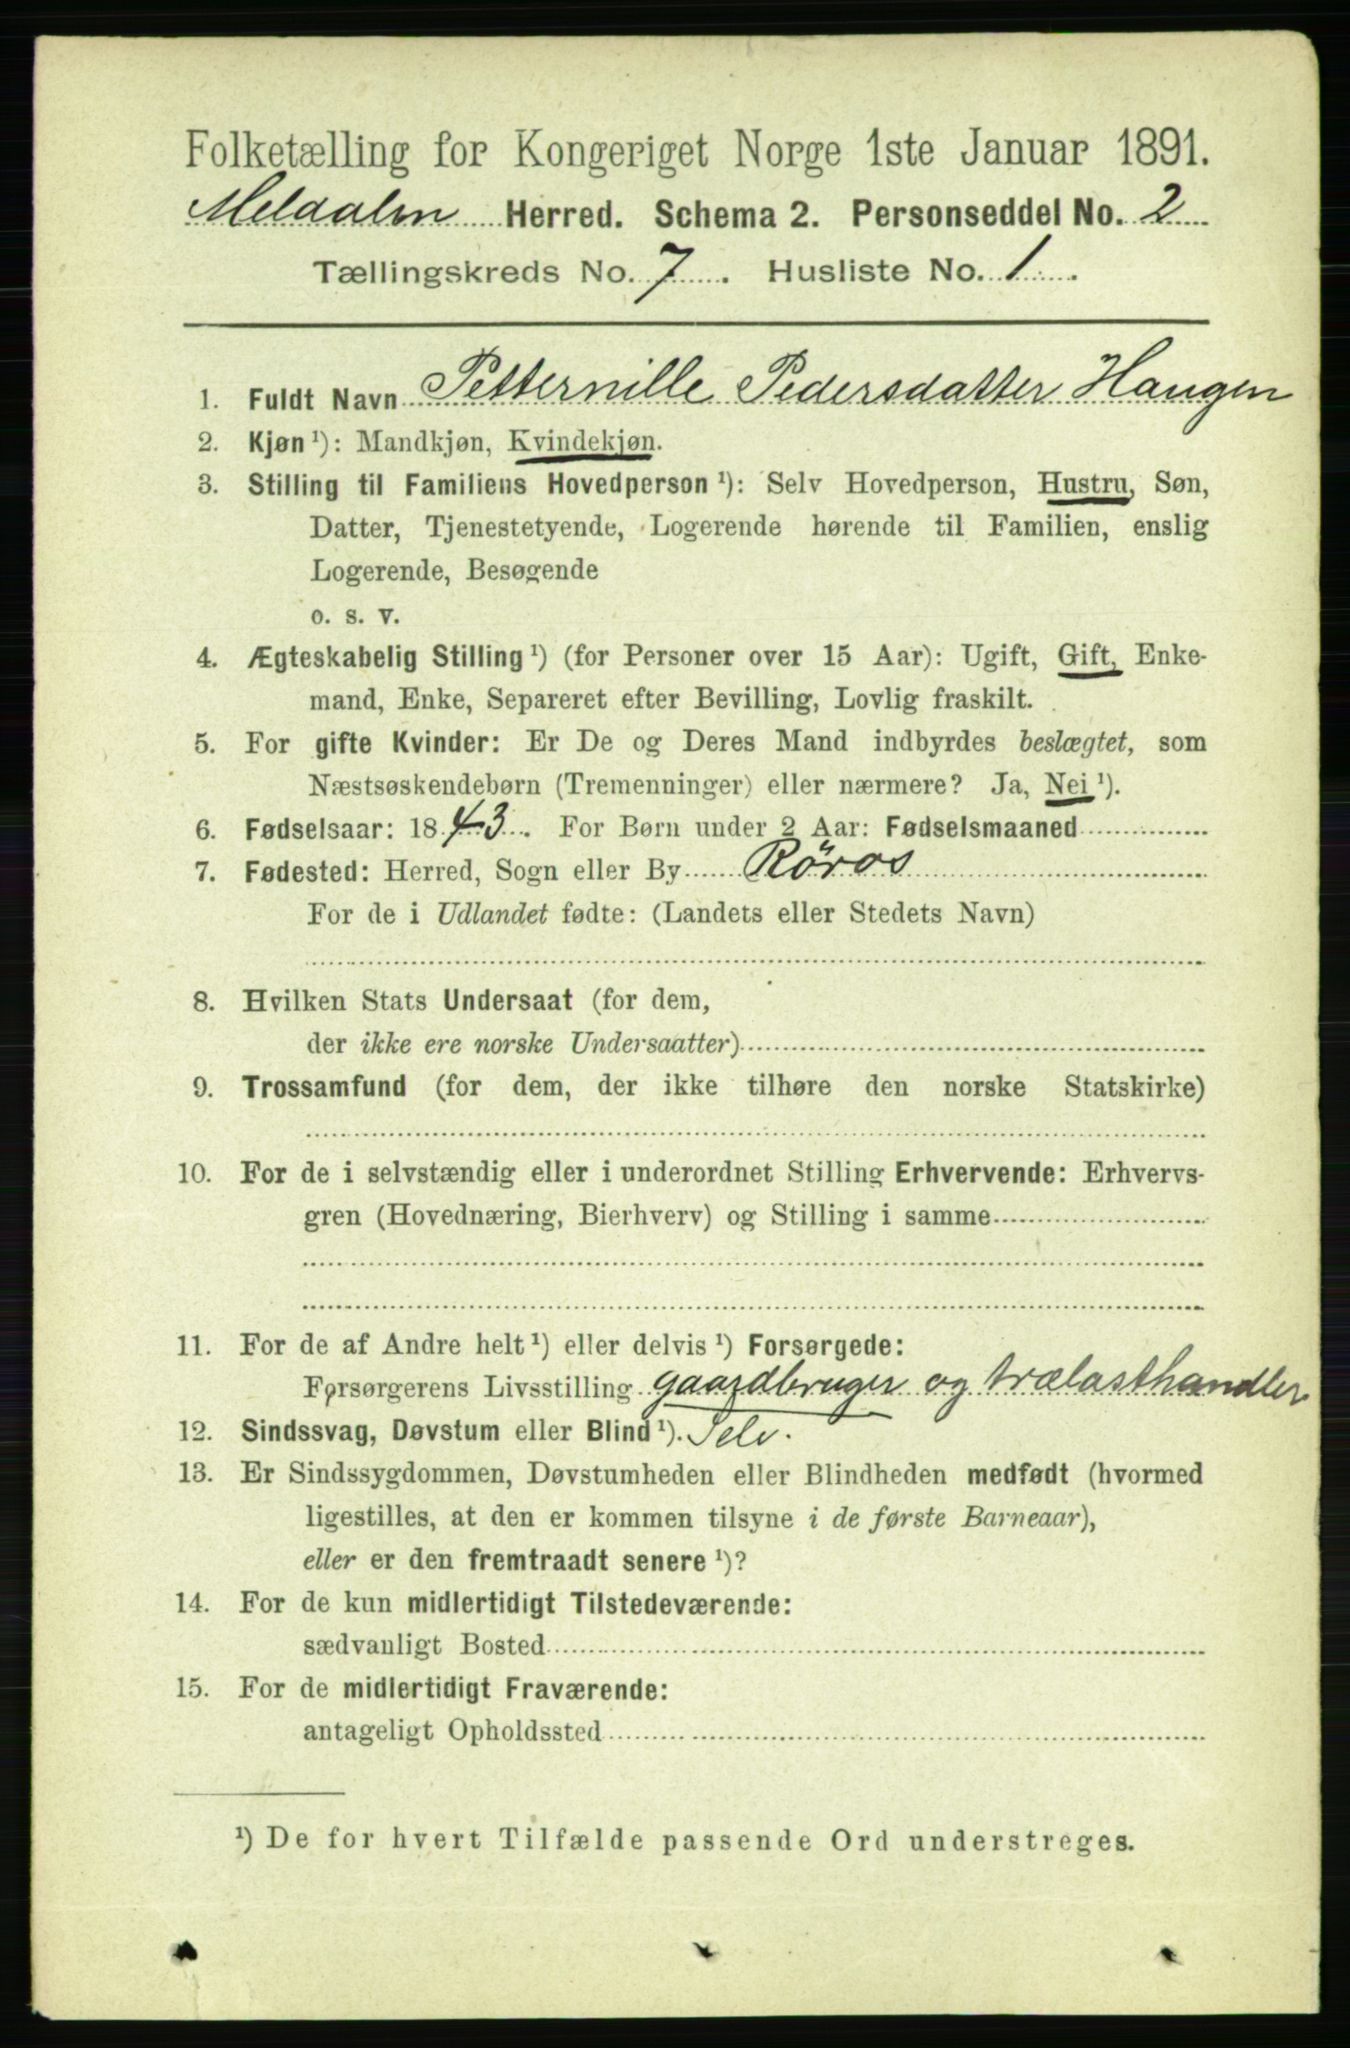 Folketælling for Kongeriget Norge 1ste Januar 1891.
Meldalen Herred. Schema 2. Personseddel No. 2
Tællingskreds No. 7. Husliste No. 1.
1. Fuldt Navn Petternille Pedersdatter Haugen
2. Kjøn ¹): Mandkjøn, Kvindekjøn.
3. Stilling til Familiens Hovedperson ¹): Selv Hovedperson, Hustru, Søn,
Datter, Tjenestetyende, Logerende hørende til Familien, enslig
Logerende, Besøgende
o. s. v.
4. Ægteskabelig Stilling ¹) (for Personer over 15 Aar): Ugift, Gift, Enke-
mand, Enke, Separeret efter Bevilling, Lovlig fraskilt.
5. For gifte Kvinder: Er De og Deres Mand indbyrdes beslægtet, som
Næstsøskendebørn (Tremenninger) eller nærmere? Ja, Nei ¹).
6. Fødselsaar: 1843. For Børn under 2 Aar: Fødselsmaaned
7. Fødested: Herred, Sogn eller By Röros
For de i Udlandet fødte: (Landets eller Stedets Navn)
8. Hvilken Stats Undersaat (for dem,
der ikke ere norske Undersaatter)
9. Trossamfund (for dem, der ikke tilhøre den norske Statskirke)
10. For de i selvstændig eller i underordnet Stilling Erhvervende: Erhvervs-
gren (Hovednæring, Bierhverv) og Stilling i samme
11. For de af Andre helt ¹) eller delvis ¹) Forsørgede:
Forsørgerens Livsstilling gaardbruger og trælasthandler
12. Sindssvag, Døvstum eller Blind ¹). Selv.
13. Er Sindssygdommen, Døvstumheden eller Blindheden medfødt (hvormed
ligestilles, at den er kommen tilsyne i de første Barneaar),
eller er den fremtraadt senere ¹)?
14. For de kun midlertidigt Tilstedeværende:
sædvanligt Bosted
15. For de midlertidigt Fraværende:
antageligt Opholdssted
¹) De for hvert Tilfælde passende Ord understreges.